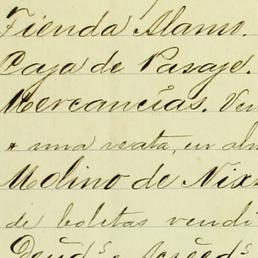 Tienda Alamo.
Caja de Pasaje.
Mercancías. Ven
una reata, en alm
Molino de Nixt
de boletas vendi
Deuds. y Acreeds.